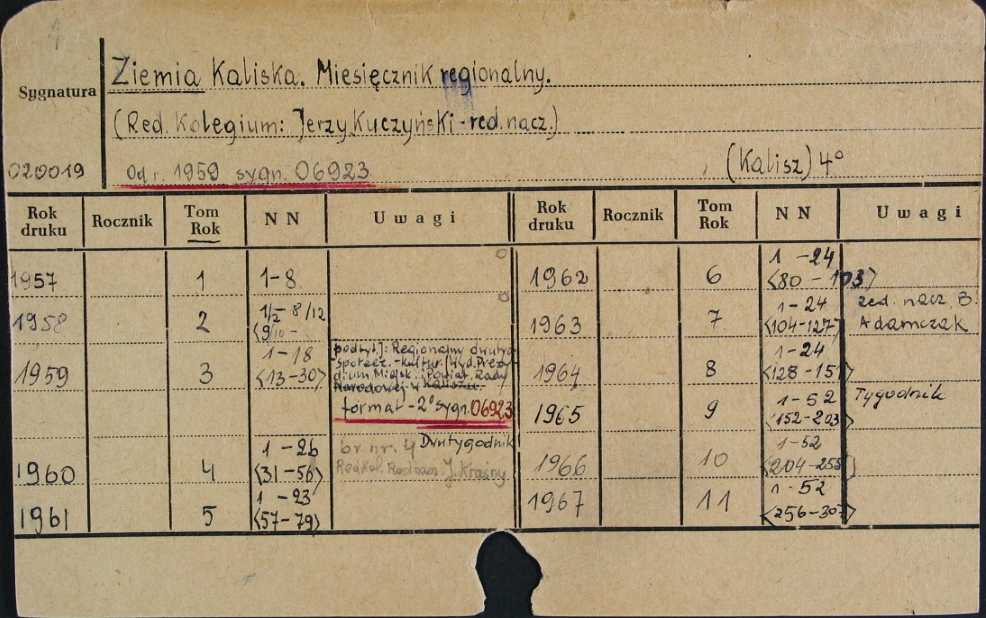 Sygnatura
Ziemia Kaliska. Miesięcznik regionalny.
(Red. Kolegium: Jerzy Kuczyński - red. nacz.)
020019 Od r. 1959 sygn. 06923 (Kalisz) 4°
Rok druku Rocznik Tom Rok NN Uwagi Rok druku Rocznik Tom Rok NN Uwagi
1957 1 1-8 1962 6 1 - 24 <80 - 103>
1958 2 1/2 - 8/12 <9/10 - 1963 7 1 - 24 <104-127> red. nacz. B. Adamczak
1959 3 1 - 18 <13-30> podtyt.: Regionalny dwutyg. społecz.-kultur. Wyd. Prezydium Miejsk. i Powiat. Rady Narodowej w Kaliszu. 1964 8 1-24 <128-151>
format - 2° sygn. 06923 1965 9 1-52 <152-203> Tygodnik
1960 4 1 - 26 <31-56> br. nr. 4 Dwutygodnik 1966 10 1-52 <204-255>
J. Kraśny
1961 5 1 - 23 <57-79> 1967 11 1-52 <256-307>